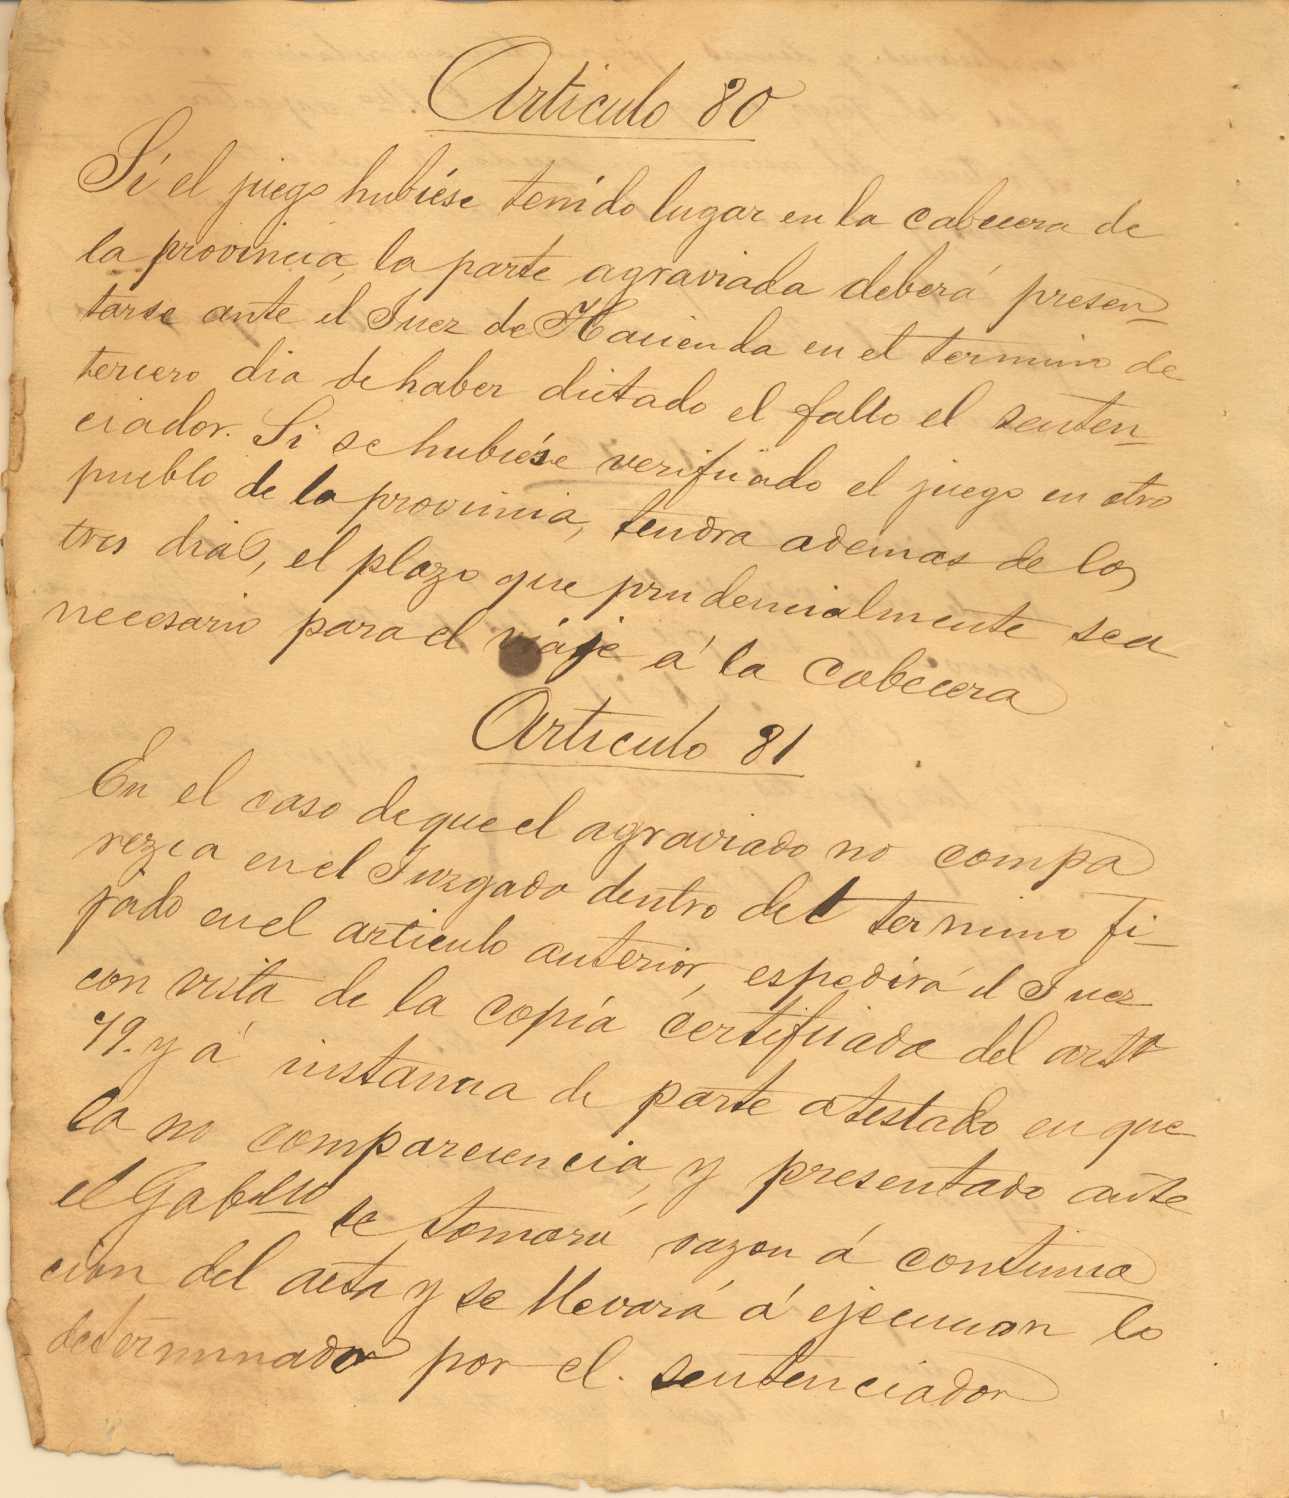 Articulo 80
Si el juego hubiése tenido lugar en la cabecera de
la provincia, la parte agraviada deberá presen-
tarse ante el Juez de Hacienda en el termino de
tercero dia de haber dictado el fallo el senten-
ciador. Si se hubiése verificado el juego en otro
pueblo de la provincia, tendra ademas de los
tres dias, el plazo que prudencialmente sea
necesario para el viáje á la cabecera
Articulo 81
En el caso de que el agraviado no compa
rezca en el Juzgado dentro del termino fi-
jado en el articulo anterior, espedirá el Juez
con vista de la copia certificada del artº
79. y á instancia de parte atestado en que
la no comparecencia, y presentado ante
el Gabllo se tomará razon á continua
cion del acta y se llevará á ejecucion lo
determinado por el. sentenciador